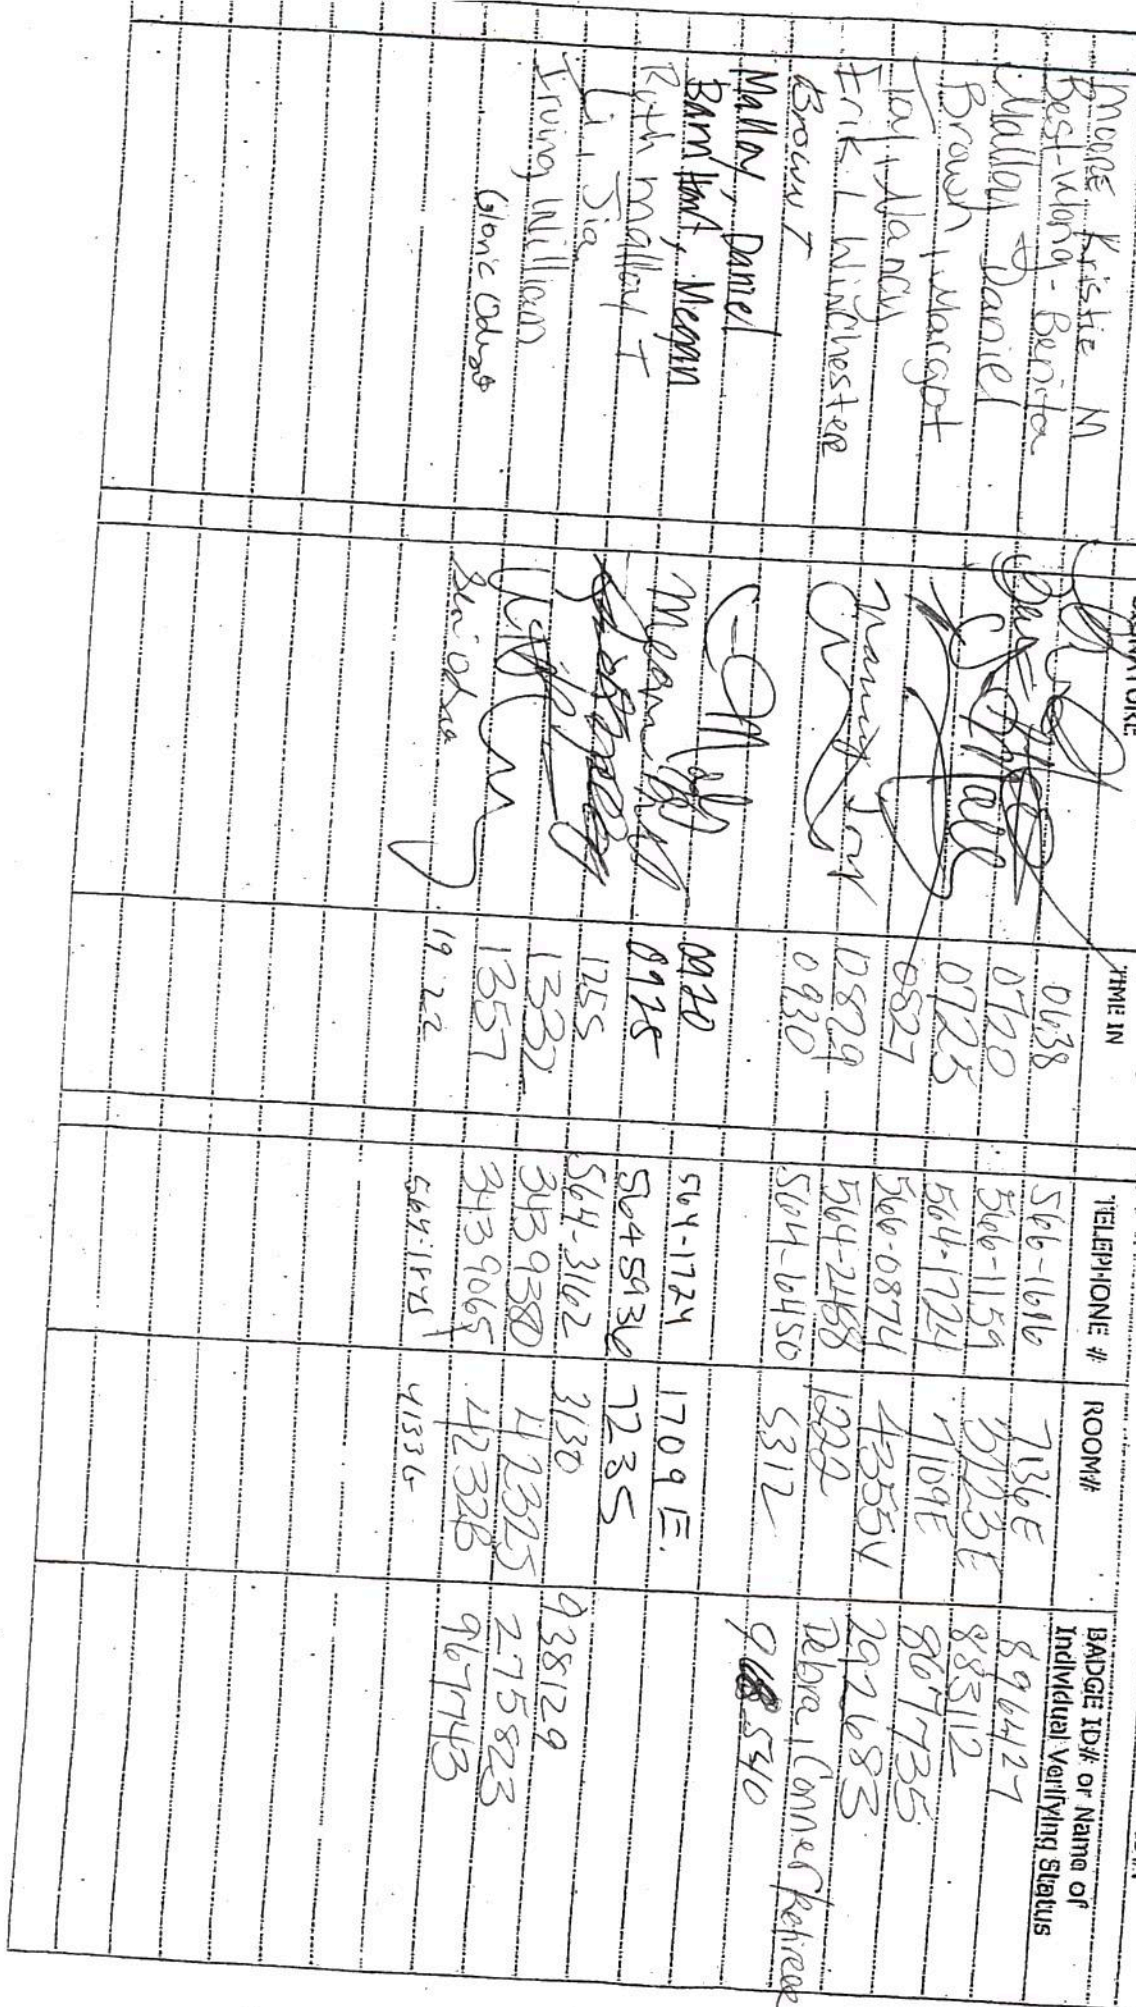 SIGNATURE TIME IN TELEPHONE # ROOM# BADGE ID# or Name of
Individual Verifying Status
Moore, Kristie M 0638 566-1616 7136E 896427
Best-Wong-Benita 0720 566-1159 883112
Malloy Daniel 0725 564-1724 7109E 867735
Brown, Margot 0827 566-0874 4355V 292683
Toy, Nancy Nancy Toy 0829 564-2468 1222 Debra, Conner Retiree
Erik L Winchester 0930 564-6450 5312 968540
Brown T
Malloy, Daniel 0920 564-1724 1709E.
Barnhart, Megan 0925 5645936 7235
Ruth Malloy T 1255 564-3162 3130 938129
Li, Jia 1332 3439380 42325 275823
Irving William 1357 3439065 4232B 967743
19 22 564-1875 4133G